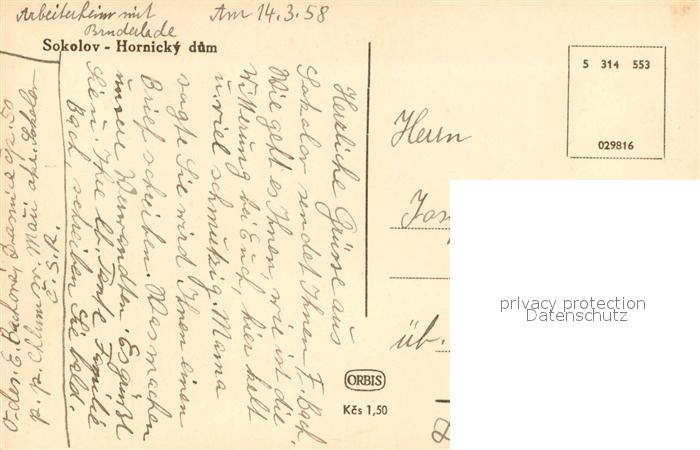 Arbeiterheim mit
Bruderlade
Am 14.3.58
Sokolov - Hornický dům
Herzliche Grüsse aus
Sokolov sendet Ihnen F. Bach.
Wie geht es Ihnen, wie ist die
Witterung bei Euch, hier kalt
u. viel schmutzig. Mama
sagte Sie wird Ihnen einen
Brief schreiben. Was machen
unsere Verwandten. Es grüßt
Sie u. Ihre lb. Tante Familie
Bach, schreiben Sie bald.
E. Bachová,
Č.S.R.
5 314 553
029816
Herrn
üb.
ORBIS
Kčs 1,50
privacy protection
Datenschutz